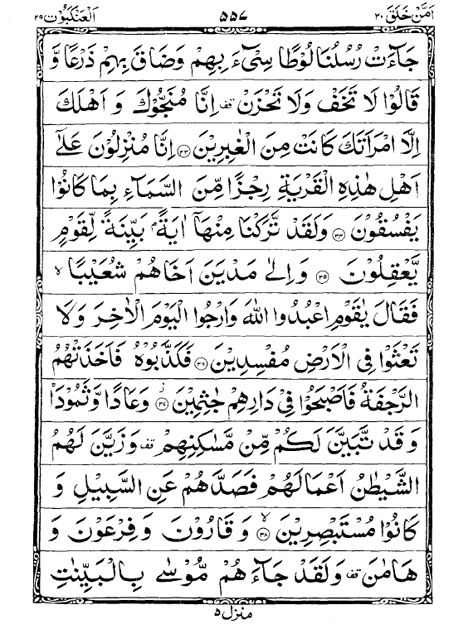 اَمَّنْ خَلَقَ ۲۰ ۵۵۷ اَلْعَنْكَبُوْت ۲۹
جَآءَتْ رُسُلُنَا لُوْطًا سِیْٓءَ بِهِمْ وَضَاقَ بِهِمْ ذَرْعًا وَّ
قَالُوْا لَا تَخَفْ وَلَا تَحْزَنْ ۫ اِنَّا مُنَجُّوْكَ وَ اَهْلَكَ
اِلَّا امْرَاَتَكَ كَانَتْ مِنَ الْغٰبِرِیْنَ ﴿۳۳﴾ اِنَّا مُنْزِلُوْنَ عَلٰۤی
اَهْلِ هٰذِهِ الْقَرْیَةِ رِجْزًا مِّنَ السَّمَآءِ بِمَا كَانُوْا
یَفْسُقُوْنَ ﴿۳۴﴾ وَلَقَدْ تَّرَكْنَا مِنْهَاۤ اٰیَةًۢ بَیِّنَةً لِّقَوْمٍ
یَّعْقِلُوْنَ ﴿۳۵﴾ وَ اِلٰی مَدْیَنَ اَخَاهُمْ شُعَیْبًا ۙ
فَقَالَ یٰقَوْمِ اعْبُدُوا اللّٰهَ وَارْجُوا الْیَوْمَ الْاٰخِرَ وَلَا
تَعْثَوْا فِی الْاَرْضِ مُفْسِدِیْنَ ﴿۳۶﴾ فَكَذَّبُوْهُ فَاَخَذَتْهُمُ
الرَّجْفَةُ فَاَصْبَحُوْا فِیْ دَارِهِمْ جٰثِمِیْنَ ﴿۳۷﴾ وَعَادًا وَّثَمُوْدَا۠
وَ قَدْ تَّبَیَّنَ لَكُمْ مِّنْ مَّسٰكِنِهِمْ ۫ وَزَیَّنَ لَهُمُ
الشَّیْطٰنُ اَعْمَالَهُمْ فَصَدَّهُمْ عَنِ السَّبِیْلِ وَ
كَانُوْا مُسْتَبْصِرِیْنَ ﴿۳۸﴾ وَ قَارُوْنَ وَ فِرْعَوْنَ وَ
هَامٰنَ ۫ وَلَقَدْ جَآءَهُمْ مُّوْسٰی بِالْبَیِّنٰتِ
منزل ۵